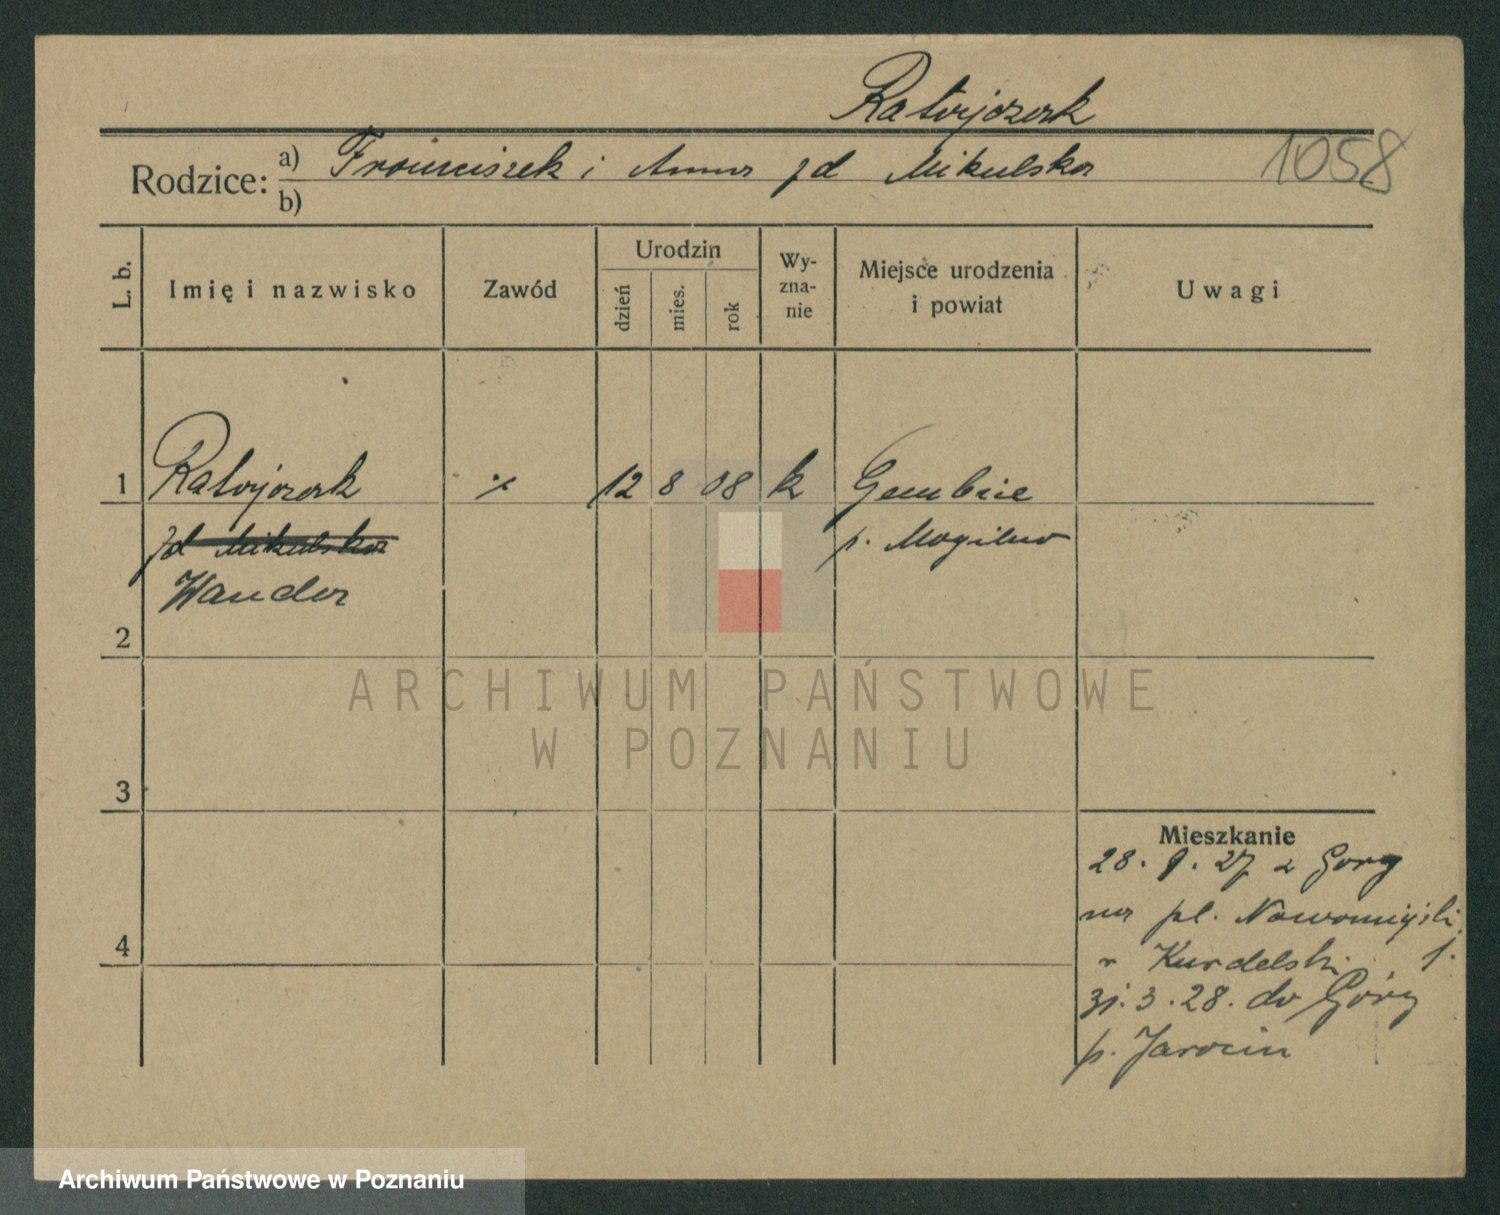 Ratajczak
1058
Rodzice: a) Franciszek i Anna zd Mikulska
b)
L. b. Imię i nazwisko Zawód Urodzin dzień mies. rok Wy-zna-nie Miejsce urodzenia i powiat Uwagi
1 Ratajczak ٪ 12 8 08 k Gembice
zd Mikulska p. Mogilno
Wanda
2
ARCHIWUM PAŃSTWOWE
W POZNANIU
3
Mieszkanie
28. 9. 27 z Gory
na pl. Nowomiejski
4
r Kurdelski 1.
31. 3. 28. do Góry
p. Jarocin
Archiwum Państwowe w Poznaniu